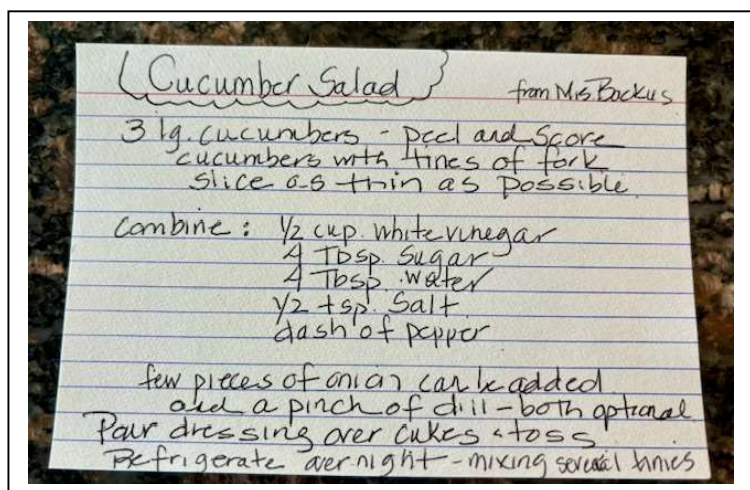 Cucumber Salad
from Mrs Bockus
3 lg. cucumbers - peel and score
cucumbers with tines of fork
slice as thin as possible
Combine: 1/2 cup white vinegar
4 Tbsp. Sugar
4 Tbsp. water
1/2 tsp. Salt
dash of pepper
few pieces of onion can be added
and a pinch of dill - both optional
Pour dressing over cukes & toss
Refrigerate overnight - mixing several times